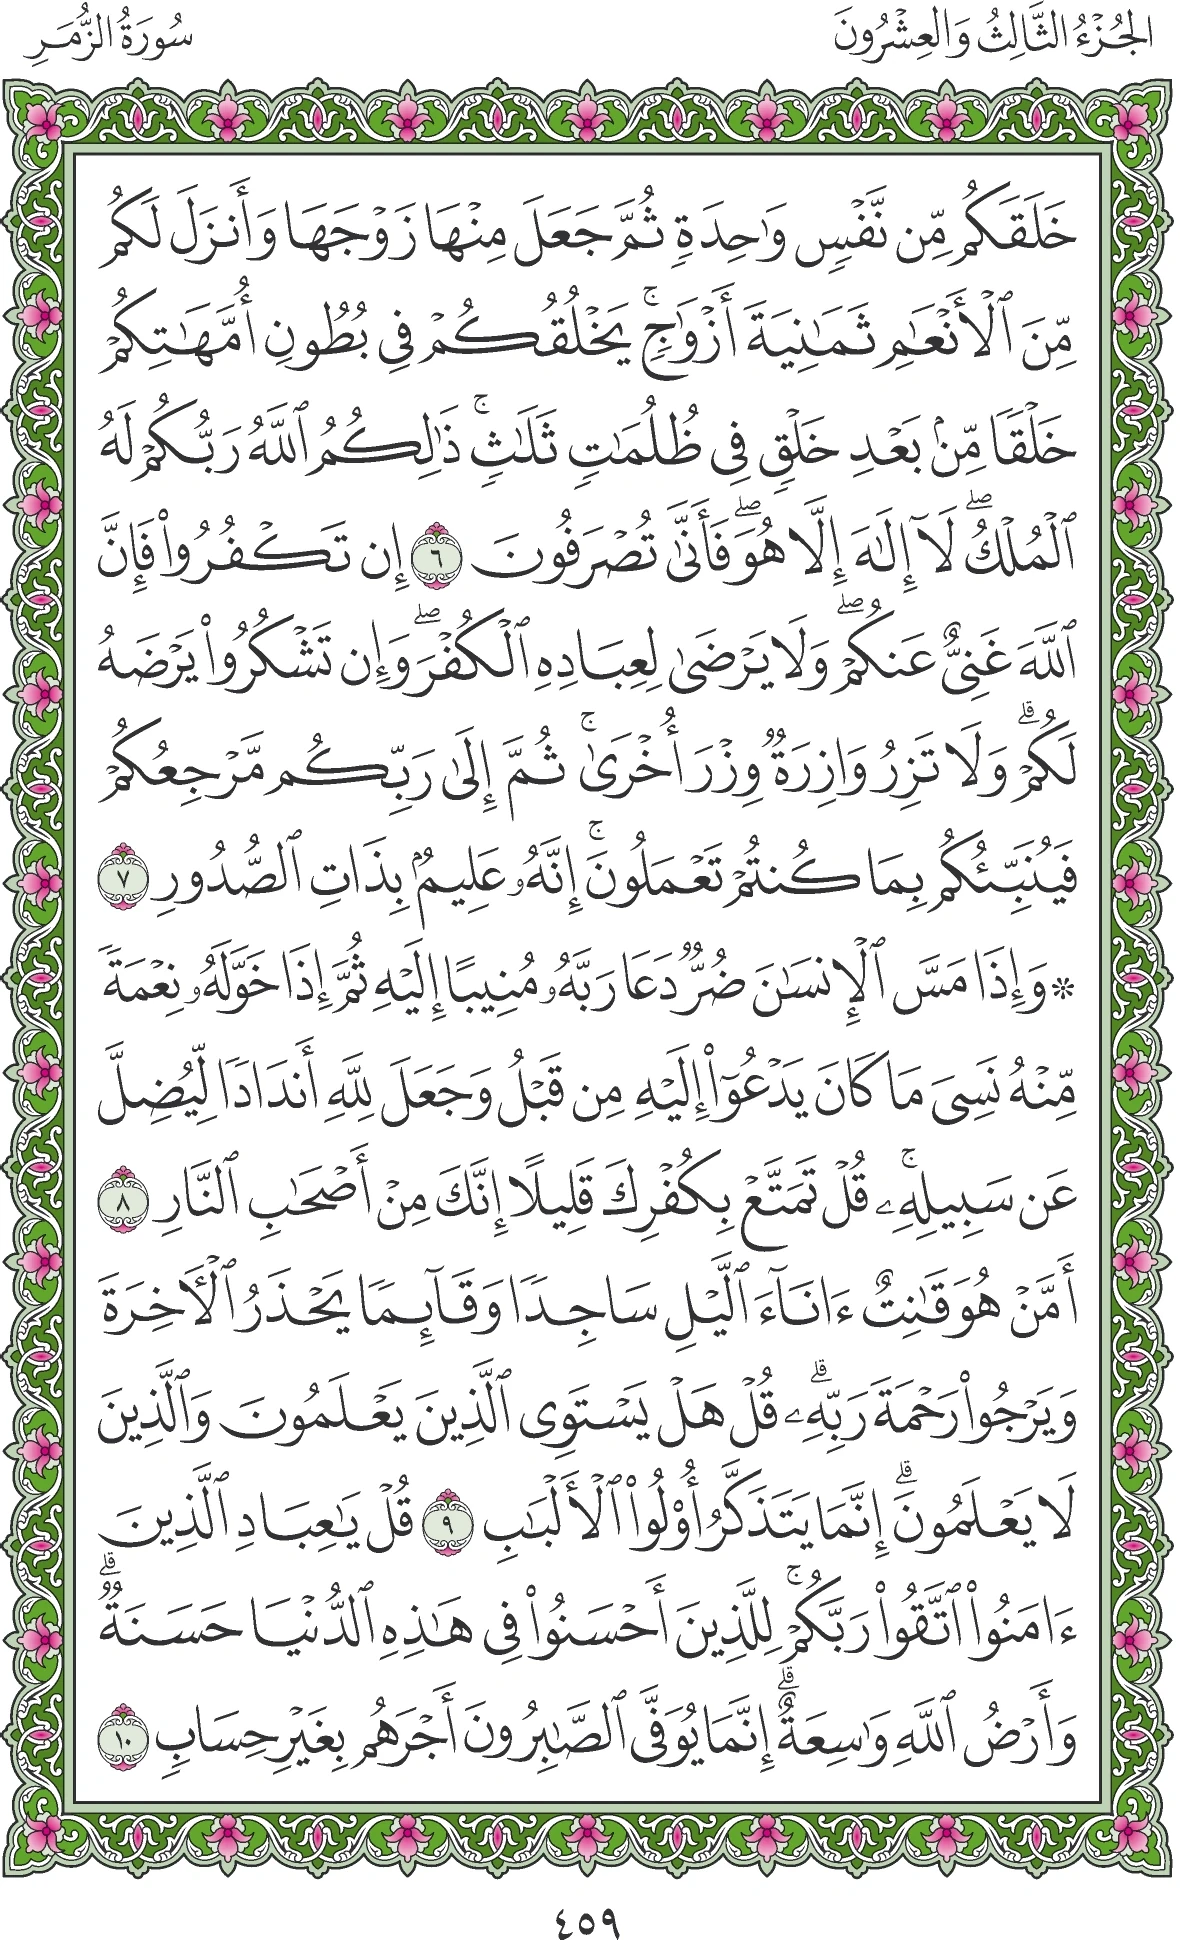 الجُزْءُ الثَّالِثُ وَالعِشْرُونَ
سُورَةُ الزُّمَرِ
خَلَقَكُم مِّن نَّفْسٍ وَٰحِدَةٍ ثُمَّ جَعَلَ مِنْهَا زَوْجَهَا وَأَنزَلَ لَكُم
مِّنَ ٱلْأَنْعَٰمِ ثَمَٰنِيَةَ أَزْوَٰجٍ ۚ يَخْلُقُكُمْ فِى بُطُونِ أُمَّهَٰتِكُمْ
خَلْقًا مِّنۢ بَعْدِ خَلْقٍ فِى ظُلُمَٰتٍ ثَلَٰثٍ ۚ ذَٰلِكُمُ ٱللَّهُ رَبُّكُمْ لَهُ
ٱلْمُلْكُ ۖ لَآ إِلَٰهَ إِلَّا هُوَ ۖ فَأَنَّىٰ تُصْرَفُونَ ٦ إِن تَكْفُرُوا۟ فَإِنَّ
ٱللَّهَ غَنِىٌّ عَنكُمْ ۖ وَلَا يَرْضَىٰ لِعِبَادِهِ ٱلْكُفْرَ ۖ وَإِن تَشْكُرُوا۟ يَرْضَهُ
لَكُمْ ۗ وَلَا تَزِرُ وَازِرَةٌ وِزْرَ أُخْرَىٰ ۚ ثُمَّ إِلَىٰ رَبِّكُم مَّرْجِعُكُمْ
فَيُنَبِّئُكُم بِمَا كُنتُمْ تَعْمَلُونَ ۚ إِنَّهُۥ عَلِيمٌۢ بِذَاتِ ٱلصُّدُورِ ٧
۞ وَإِذَا مَسَّ ٱلْإِنسَٰنَ ضُرٌّ دَعَا رَبَّهُۥ مُنِيبًا إِلَيْهِ ثُمَّ إِذَا خَوَّلَهُۥ نِعْمَةً
مِّنْهُ نَسِىَ مَا كَانَ يَدْعُوٓا۟ إِلَيْهِ مِن قَبْلُ وَجَعَلَ لِلَّهِ أَندَادًا لِّيُضِلَّ
عَن سَبِيلِهِۦ ۚ قُلْ تَمَتَّعْ بِكُفْرِكَ قَلِيلًا إِنَّكَ مِنْ أَصْحَٰبِ ٱلنَّارِ ٨
أَمَّنْ هُوَ قَٰنِتٌ ءَانَآءَ ٱلَّيْلِ سَاجِدًا وَقَآئِمًا يَحْذَرُ ٱلْءَاخِرَةَ
وَيَرْجُوا۟ رَحْمَةَ رَبِّهِۦ ۗ قُلْ هَلْ يَسْتَوِى ٱلَّذِينَ يَعْلَمُونَ وَٱلَّذِينَ
لَا يَعْلَمُونَ ۗ إِنَّمَا يَتَذَكَّرُ أُو۟لُوا۟ ٱلْأَلْبَٰبِ ٩ قُلْ يَٰعِبَادِ ٱلَّذِينَ
ءَامَنُوا۟ ٱتَّقُوا۟ رَبَّكُمْ ۚ لِلَّذِينَ أَحْسَنُوا۟ فِى هَٰذِهِ ٱلدُّنْيَا حَسَنَةٌ ۗ
وَأَرْضُ ٱللَّهِ وَٰسِعَةٌ ۗ إِنَّمَا يُوَفَّى ٱلصَّٰبِرُونَ أَجْرَهُم بِغَيْرِ حِسَابٍ ١٠
٤٥٩